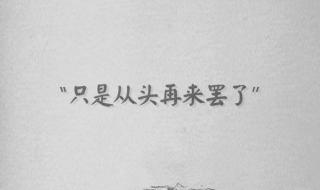 “只是从头再来罢了”